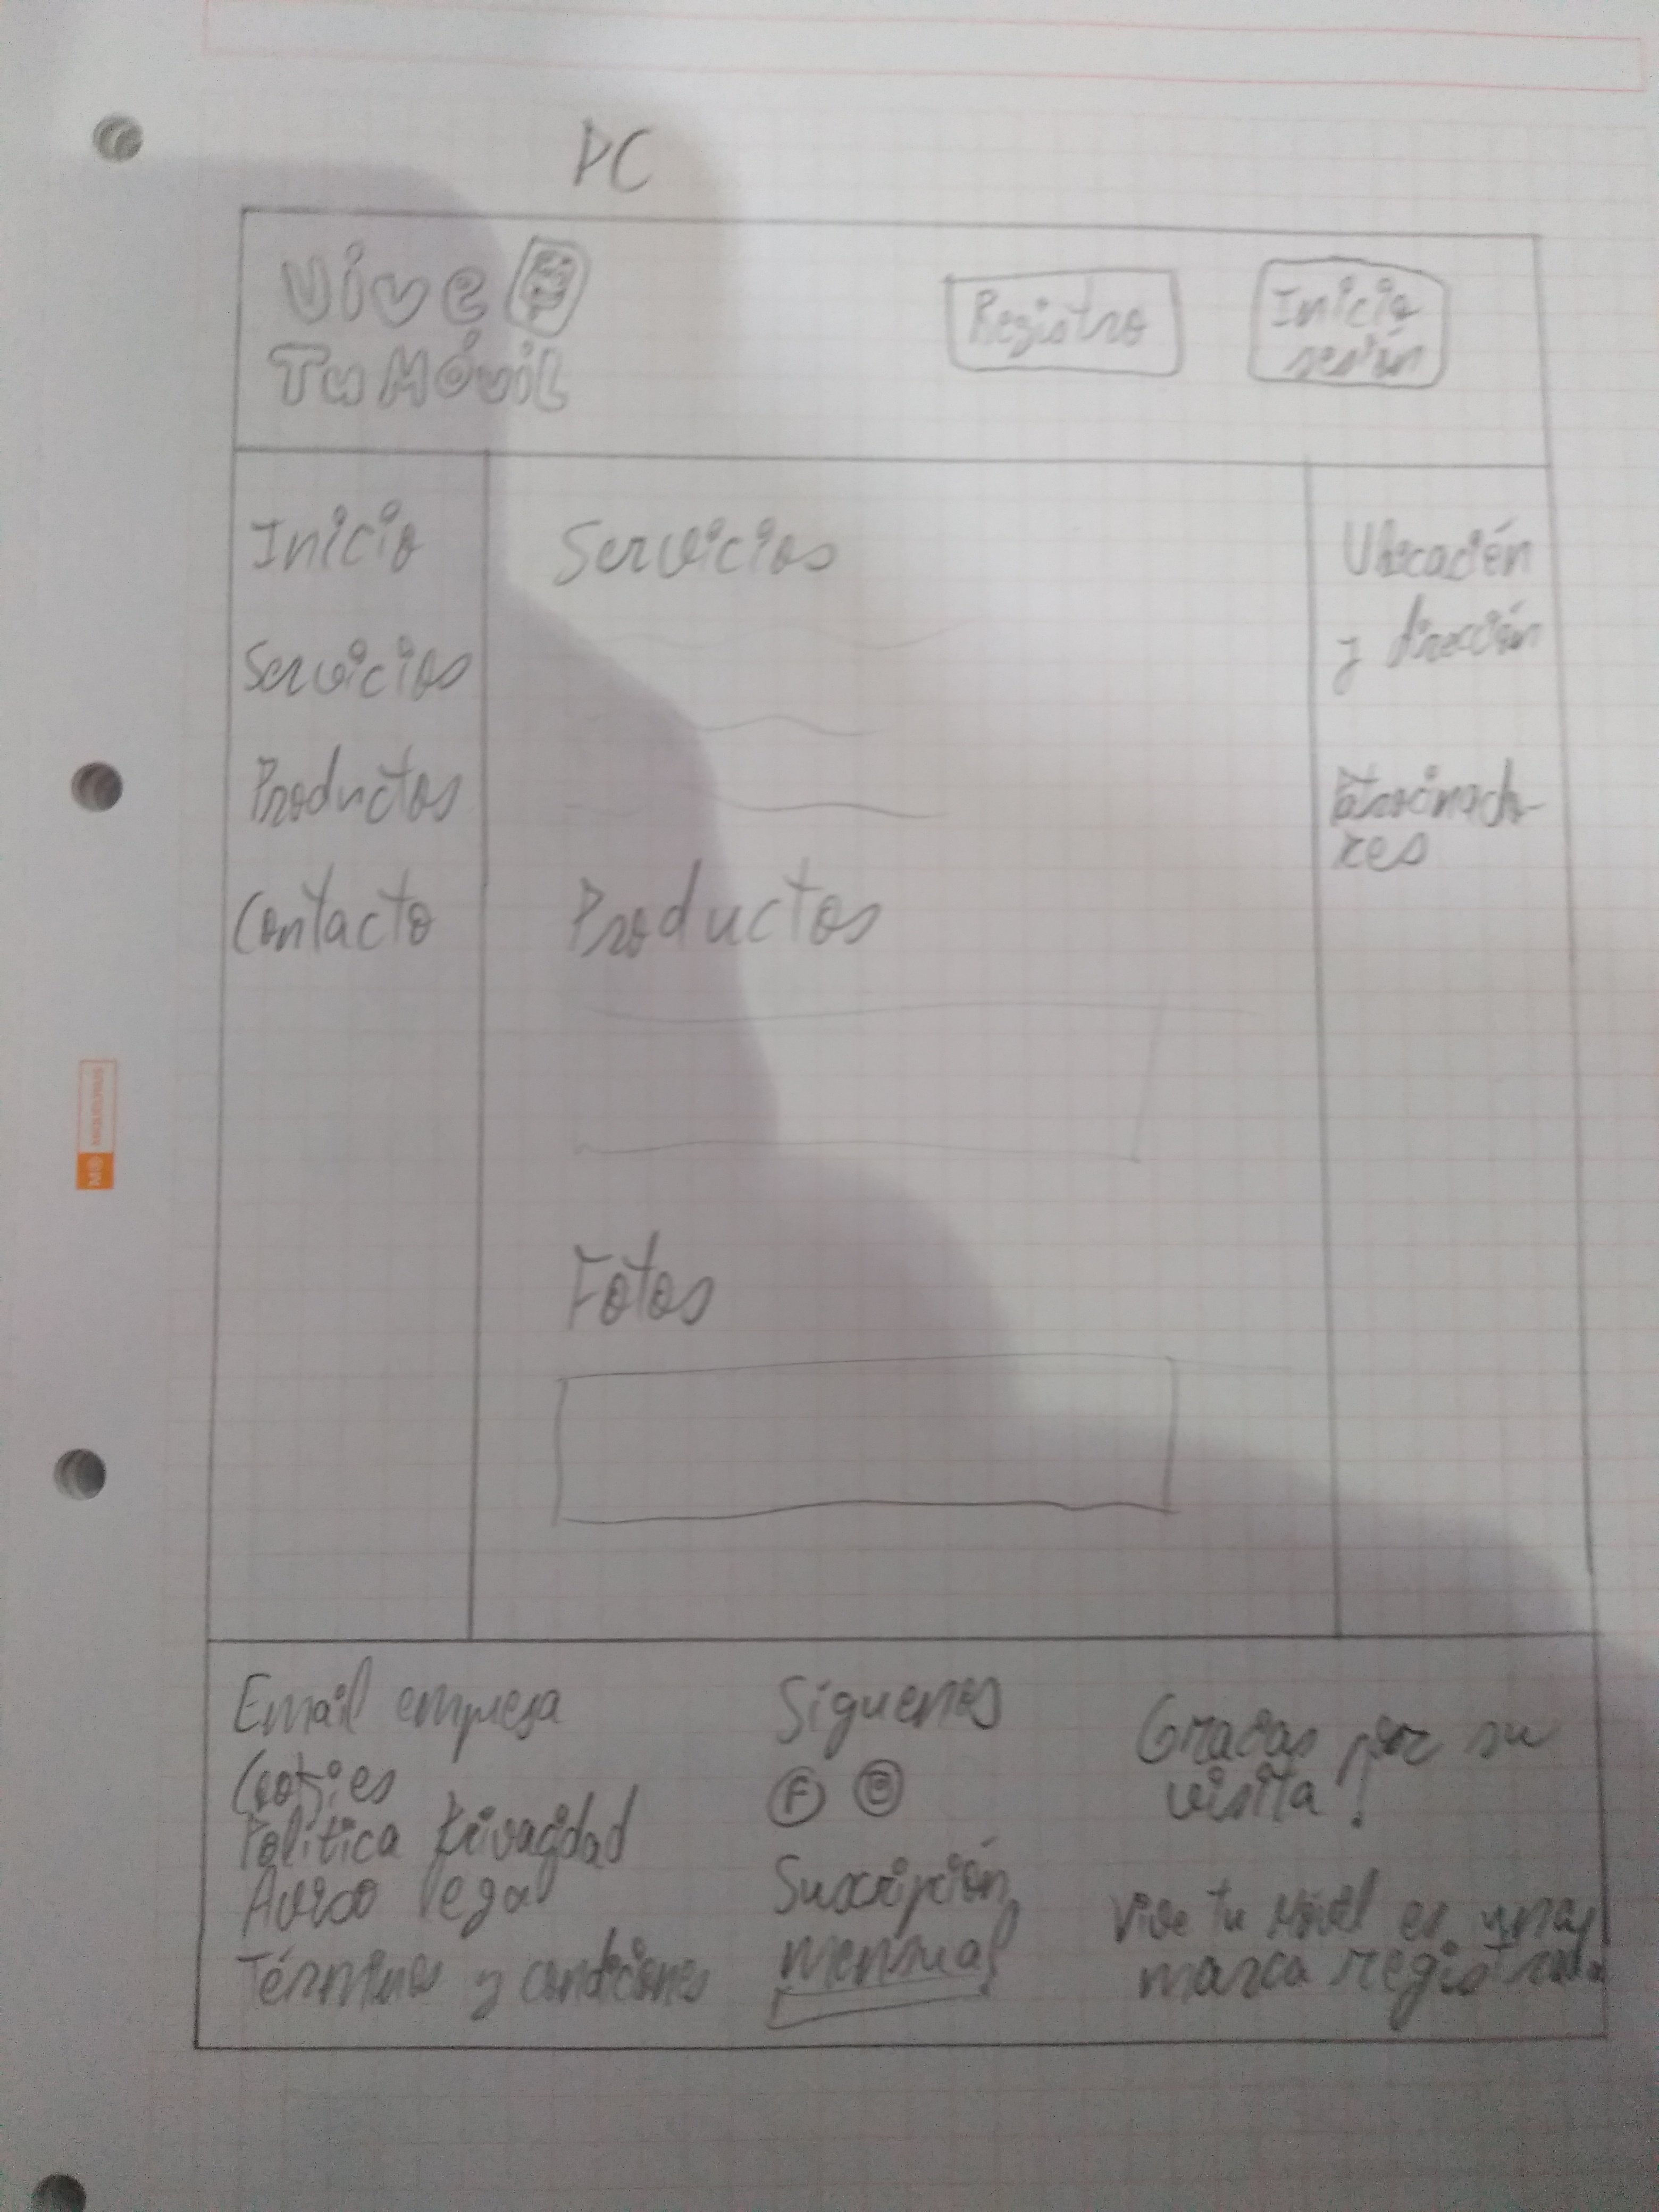 PC
Vive
Tu Móvil
Registro
Inicio
sesión
Inicio
Servicios
Productos
Contacto
Servicios
Productos
Fotos
Ubicación
y dirección
Patrocinado-
res
Email empresa
Cookies
Política Privacidad
Aviso legal
Términos y condiciones
Síguenos
F
Suscripción
mensual
Gracias por su
visita!
Vive tu Móvil es una
marca registrada